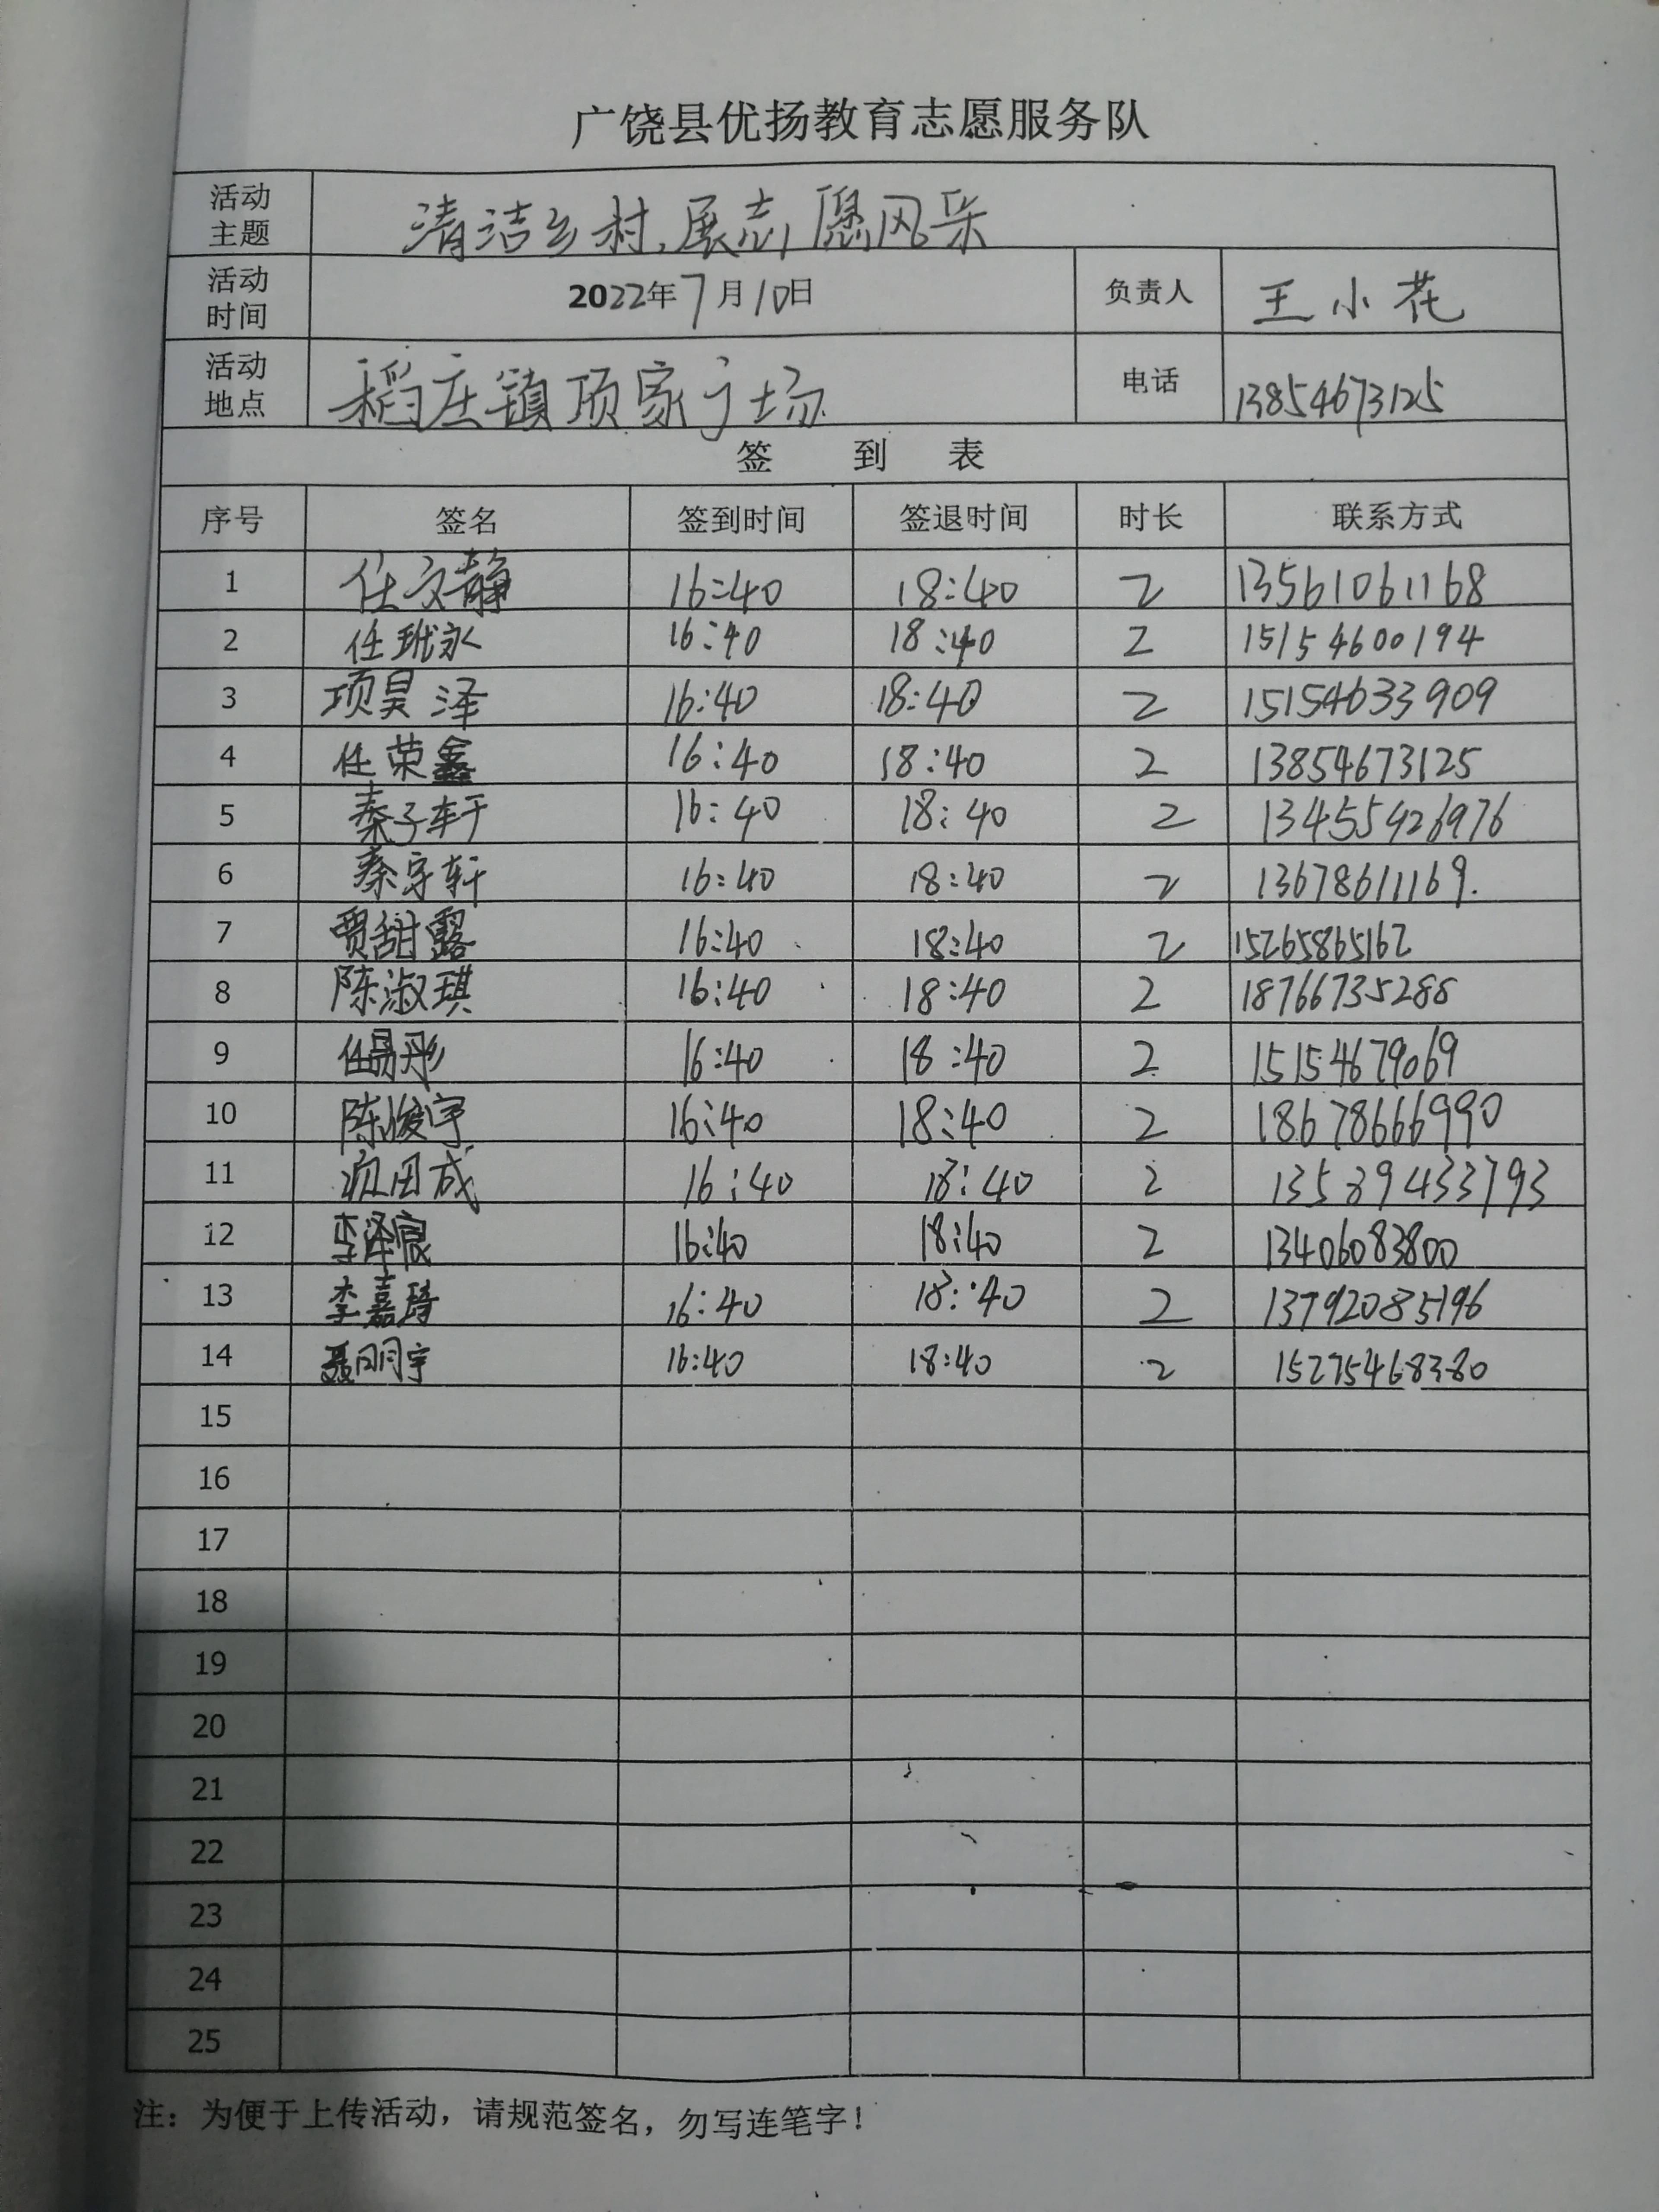 广饶县优扬教育志愿服务队
活动主题 清洁乡村,展志愿风采
活动时间 2022年7月10日 负责人 王小花
活动地点 稻庄镇项家广场 电话 13854673125
签到表
序号 签名 签到时间 签退时间 时长 联系方式
1 任文静 16:40 18:40 2 13561061168
2 任玳永 16:40 18:40 2 15154600194
3 项昊泽 16:40 18:40 2 15154633909
4 任荣鑫 16:40 18:40 2 13854673125
5 秦子轩 16:40 18:40 2 13455926976
6 秦宇轩 16:40 18:40 2 13678611169.
7 贾甜露 16:40 18:40 2 15265865162
8 陈淑琪 16:40 18:40 2 18766735288
9 任易彤 16:40 18:40 2 15154679069
10 陈俊宇 16:40 18:40 2 18678666990
11 16:40 18:40 2 13589433793
12 李泽宸 16:40 18:40 2 13406083800
13 李嘉琦 16:40 18:40 2 13792085196
14 聂明宇 16:40 18:40 2 15275468380
15
16
17
18
19
20
21
22
23
24
25
注：为便于上传活动，请规范签名，勿写连笔字！